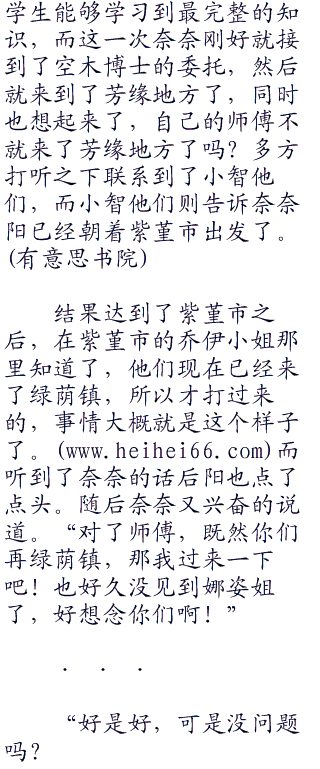 学生能够学习到最完整的知
识，而这一次奈奈刚好就接
到了空木博士的委托，然后
就来到了芳缘地方了，同时
也想起来了，自己的师傅不
就来了芳缘地方了吗？多方
打听之下联系到了小智他
们，而小智他们则告诉奈奈
阳已经朝着紫堇市出发了。
(有意思书院)
结果达到了紫堇市之
后，在紫堇市的乔伊小姐那
里知道了，他们现在已经来
了绿荫镇，所以才打过来
的，事情大概就是这个样子
了。(www.heihei66.com)而
听到了奈奈的话后阳也点了
点头。随后奈奈又兴奋的说
道。“对了师傅，既然你们
再绿荫镇，那我过来一下
吧！也好久没见到娜姿姐
了，好想念你们啊！”
. . .
“好是好，可是没问题
吗？